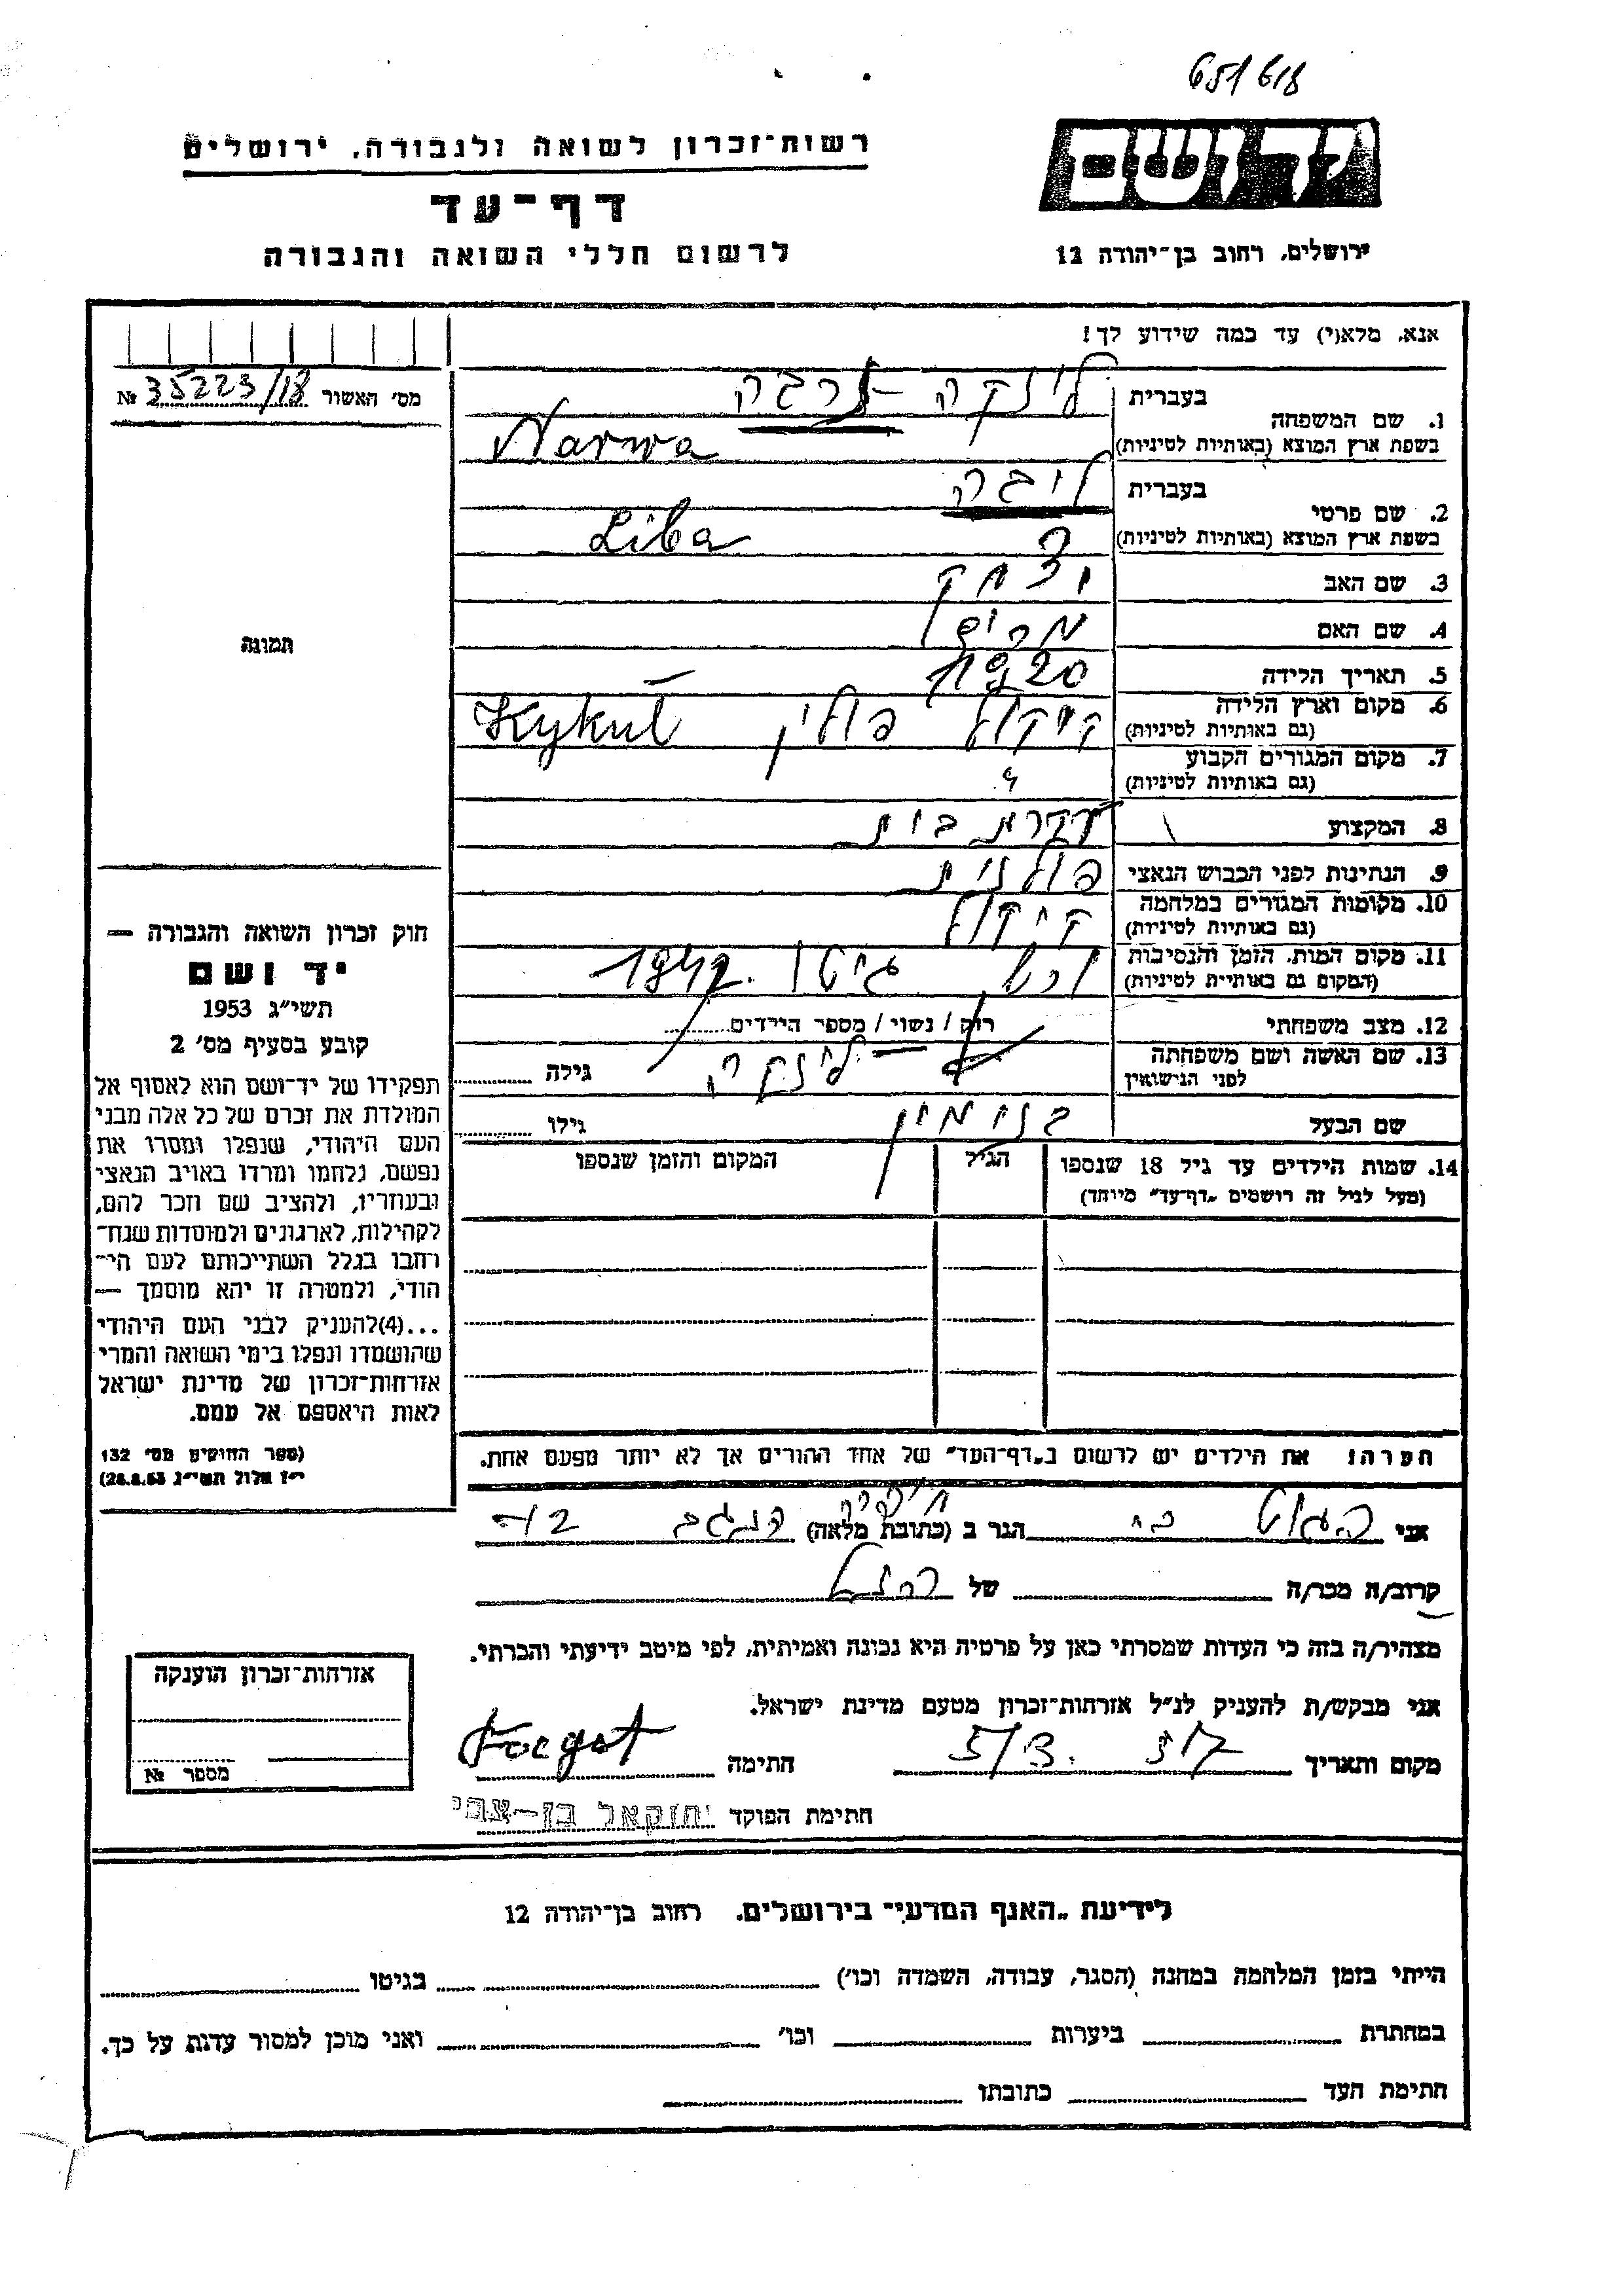 651618
יד ושם
רשות־זכרון לשואה ולגבורה, ירושלים
דף־עד
לרשום חללי השואה והגבורה
ירושלים, רחוב בן־יהודה 12
אנא, מלא(י) עד כמה שידוע לך!
מס' האשור 35223/18 №
1. שם המשפחה
בעברית
בשפת ארץ המוצא (באותיות לטיניות) Narwa
2. שם פרטי
בעברית ליבה
בשפת ארץ המוצא (באותיות לטיניות) Liba
3. שם האב יצחק
4. שם האם מרים
5. תאריך הלידה 1920
6. מקום וארץ הלידה קיקול פולין Kykuł
(גם באותיות לטיניות)
7. מקום המגורים הקבוע
(גם באותיות לטיניות)
8. המקצוע עקרת בית
9. הנתינות לפני הכבוש הנאצי פולנית
10. מקומות המגורים במלחמה קיקול
(גם באותיות לטיניות)
11. מקום המות, הזמן והנסיבות גיטו 1942
(המקום גם באותיות לטיניות)
12. מצב משפחתי רוק / נשוי / מספר הילדים
13. שם האשה ושם משפחתה
לפני הנישואין
גילה
שם הבעל בנימין גילו
14. שמות הילדים עד גיל 18 שנספו הגיל המקום והזמן שנספו
(מעל לגיל זה רושמים „דף־עד" מיוחד)
הערה! את הילדים יש לרשום ב„דף־העד" של אחד ההורים אך לא יותר מפעם אחת.
תמונה
חוק זכרון השואה והגבורה —
יד ושם
תשי"ג 1953
קובע בסעיף מס' 2
תפקידו של יד־ושם הוא לאסוף אל
המולדת את זכרם של כל אלה מבני
העם היהודי, שנפלו ומסרו את
נפשם, נלחמו ומרדו באויב הנאצי
ובעוזריו, ולהציב שם וזכר להם,
לקהילות, לארגונים ולמוסדות שנח־
רחבו בגלל השתייכותם לעם הי־
הודי, ולמטרה זו יהא מוסמך —
...(4)להעניק לבני העם היהודי
שהושמדו ונפלו בימי השואה והמרי
אזרחות־זכרון של מדינת ישראל
לאות היאספם אל עמם.
(ספר החוקים מס' 132
י"ז אלול תשי"ג 28.8.53)
אני הגר ב (כתובת מלאה) חיפה
קרוב/ה מכר/ה של
מצהיר/ה בזה כי העדות שמסרתי כאן על פרטיה היא נכונה ואמיתית, לפי מיטב ידיעתי והכרתי.
אני מבקש/ת להעניק לנ"ל אזרחות־זכרון מטעם מדינת ישראל.
מקום ותאריך חתימה
חתימת הפוקד יחזקאל בן-צבי
אזרחות־זכרון הוענקה
מספר №
לידיעת „האגף המדעי" בירושלים, רחוב בן־יהודה 12
הייתי בזמן המלחמה במחנה (הסגר, עבודה, השמדה וכו') בגיטו
במחתרת ביערות וכו' ואני מוכן למסור עדות על כך.
חתימת העד כתובתו